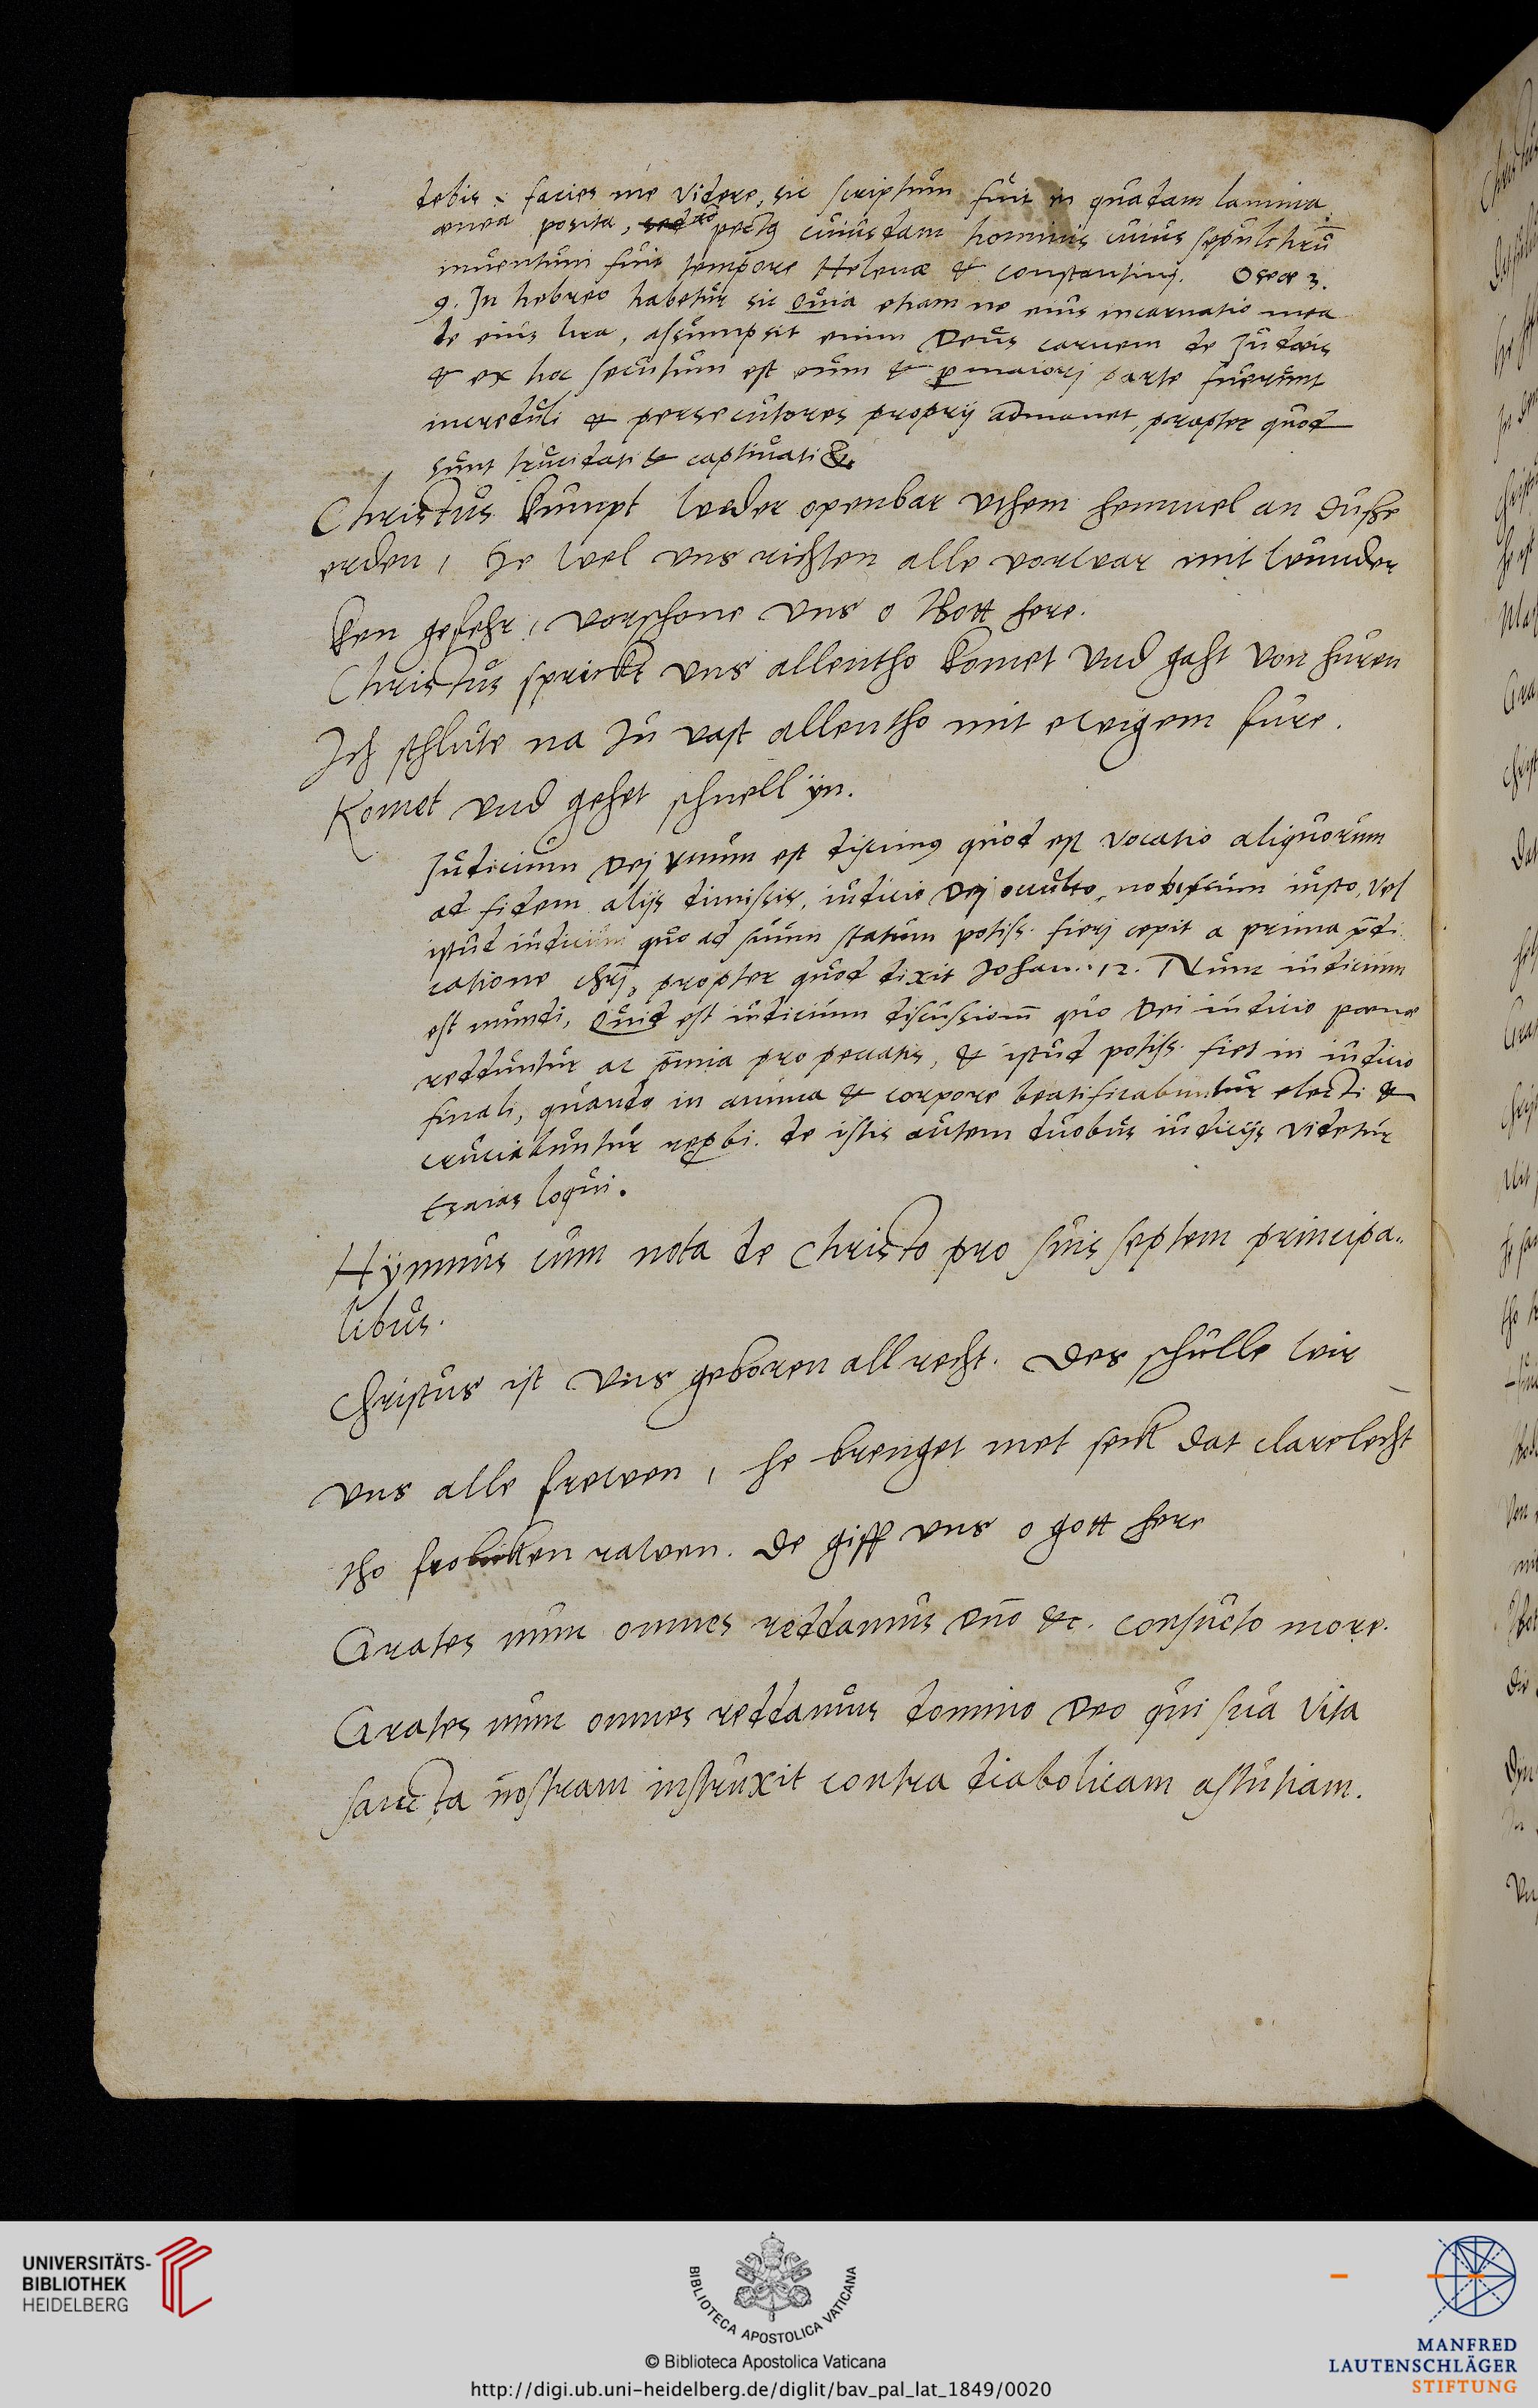 debis: facies me videre, sic scriptum fuit in quadam lamina
ænea posita, pect9 cuiusdam hominis cuius sepulchrũ
inuentum fuit tempore Helenæ & constantinj. Oseæ 3.
9. In hebreo habetur sic Quia etiam ne eius incarnatio mea
de eius lira, assumpsit enim Deus carnem de Judæis
& ex hoc secutum est eum & p maiorj parte fuerunt
increduli & persecutores proprij admanet, propter quod
sunt trucidati & captiuati &.
Christus kumpt weder openbar vthem hemmel an dusse
erden, He wel vns richten alle vorwar mit wunder
ken gefehr, vorschone vns o Gott here.
Christus sprickt vns allentho komet vnd gaht von huren
Ich schlute na Ju vast allentho mit ewigem fure.
Komet vnd gehet schnell ÿn.
Judicium Dej vnum est dicimus quod est vocatio aliquorum
ad fidem alijs dimissis, iudicio Dej occulto, iusto, vel
istud iudicium quo ad suum statum potiss. fierj cepit a prima p̄di
catione chrj, propter quod dixit Johan. 12. Nunc iudicium
est mundi, Quid est iudicium discussionis quo Dei iudicio pœnæ
redduntur ac p̄mia pro peccatis, & istud potiss. fiet in iudicio
finali, quando in anima & corpore beatificabuntur electi &
cruciabuntur repbi. de istis autem duobus iudicijs videtur
Esaias loqui.
Hÿmnus cum nota de Christo pro suis septem principa-
libus.
Christus ist vns geboren all recht. Des schulle wir
vns alle frewen, he brenget met seck dat clarelecht
tho ken rawen. De giff vns o gott here
Grates nunc omnes reddamus Dño &c. consueto more.
Grates nunc omnes reddamus domino Deo qui sua vita
sancta nostram instruxit contra diabolicam astutiam.
UNIVERSITÄTS-
BIBLIOTHEK
HEIDELBERG
BIBLIOTECA APOSTOLICA VATICANA
© Biblioteca Apostolica Vaticana
http://digi.ub.uni-heidelberg.de/diglit/bav_pal_lat_1849/0020
MANFRED
LAUTENSCHLÄGER
STIFTUNG